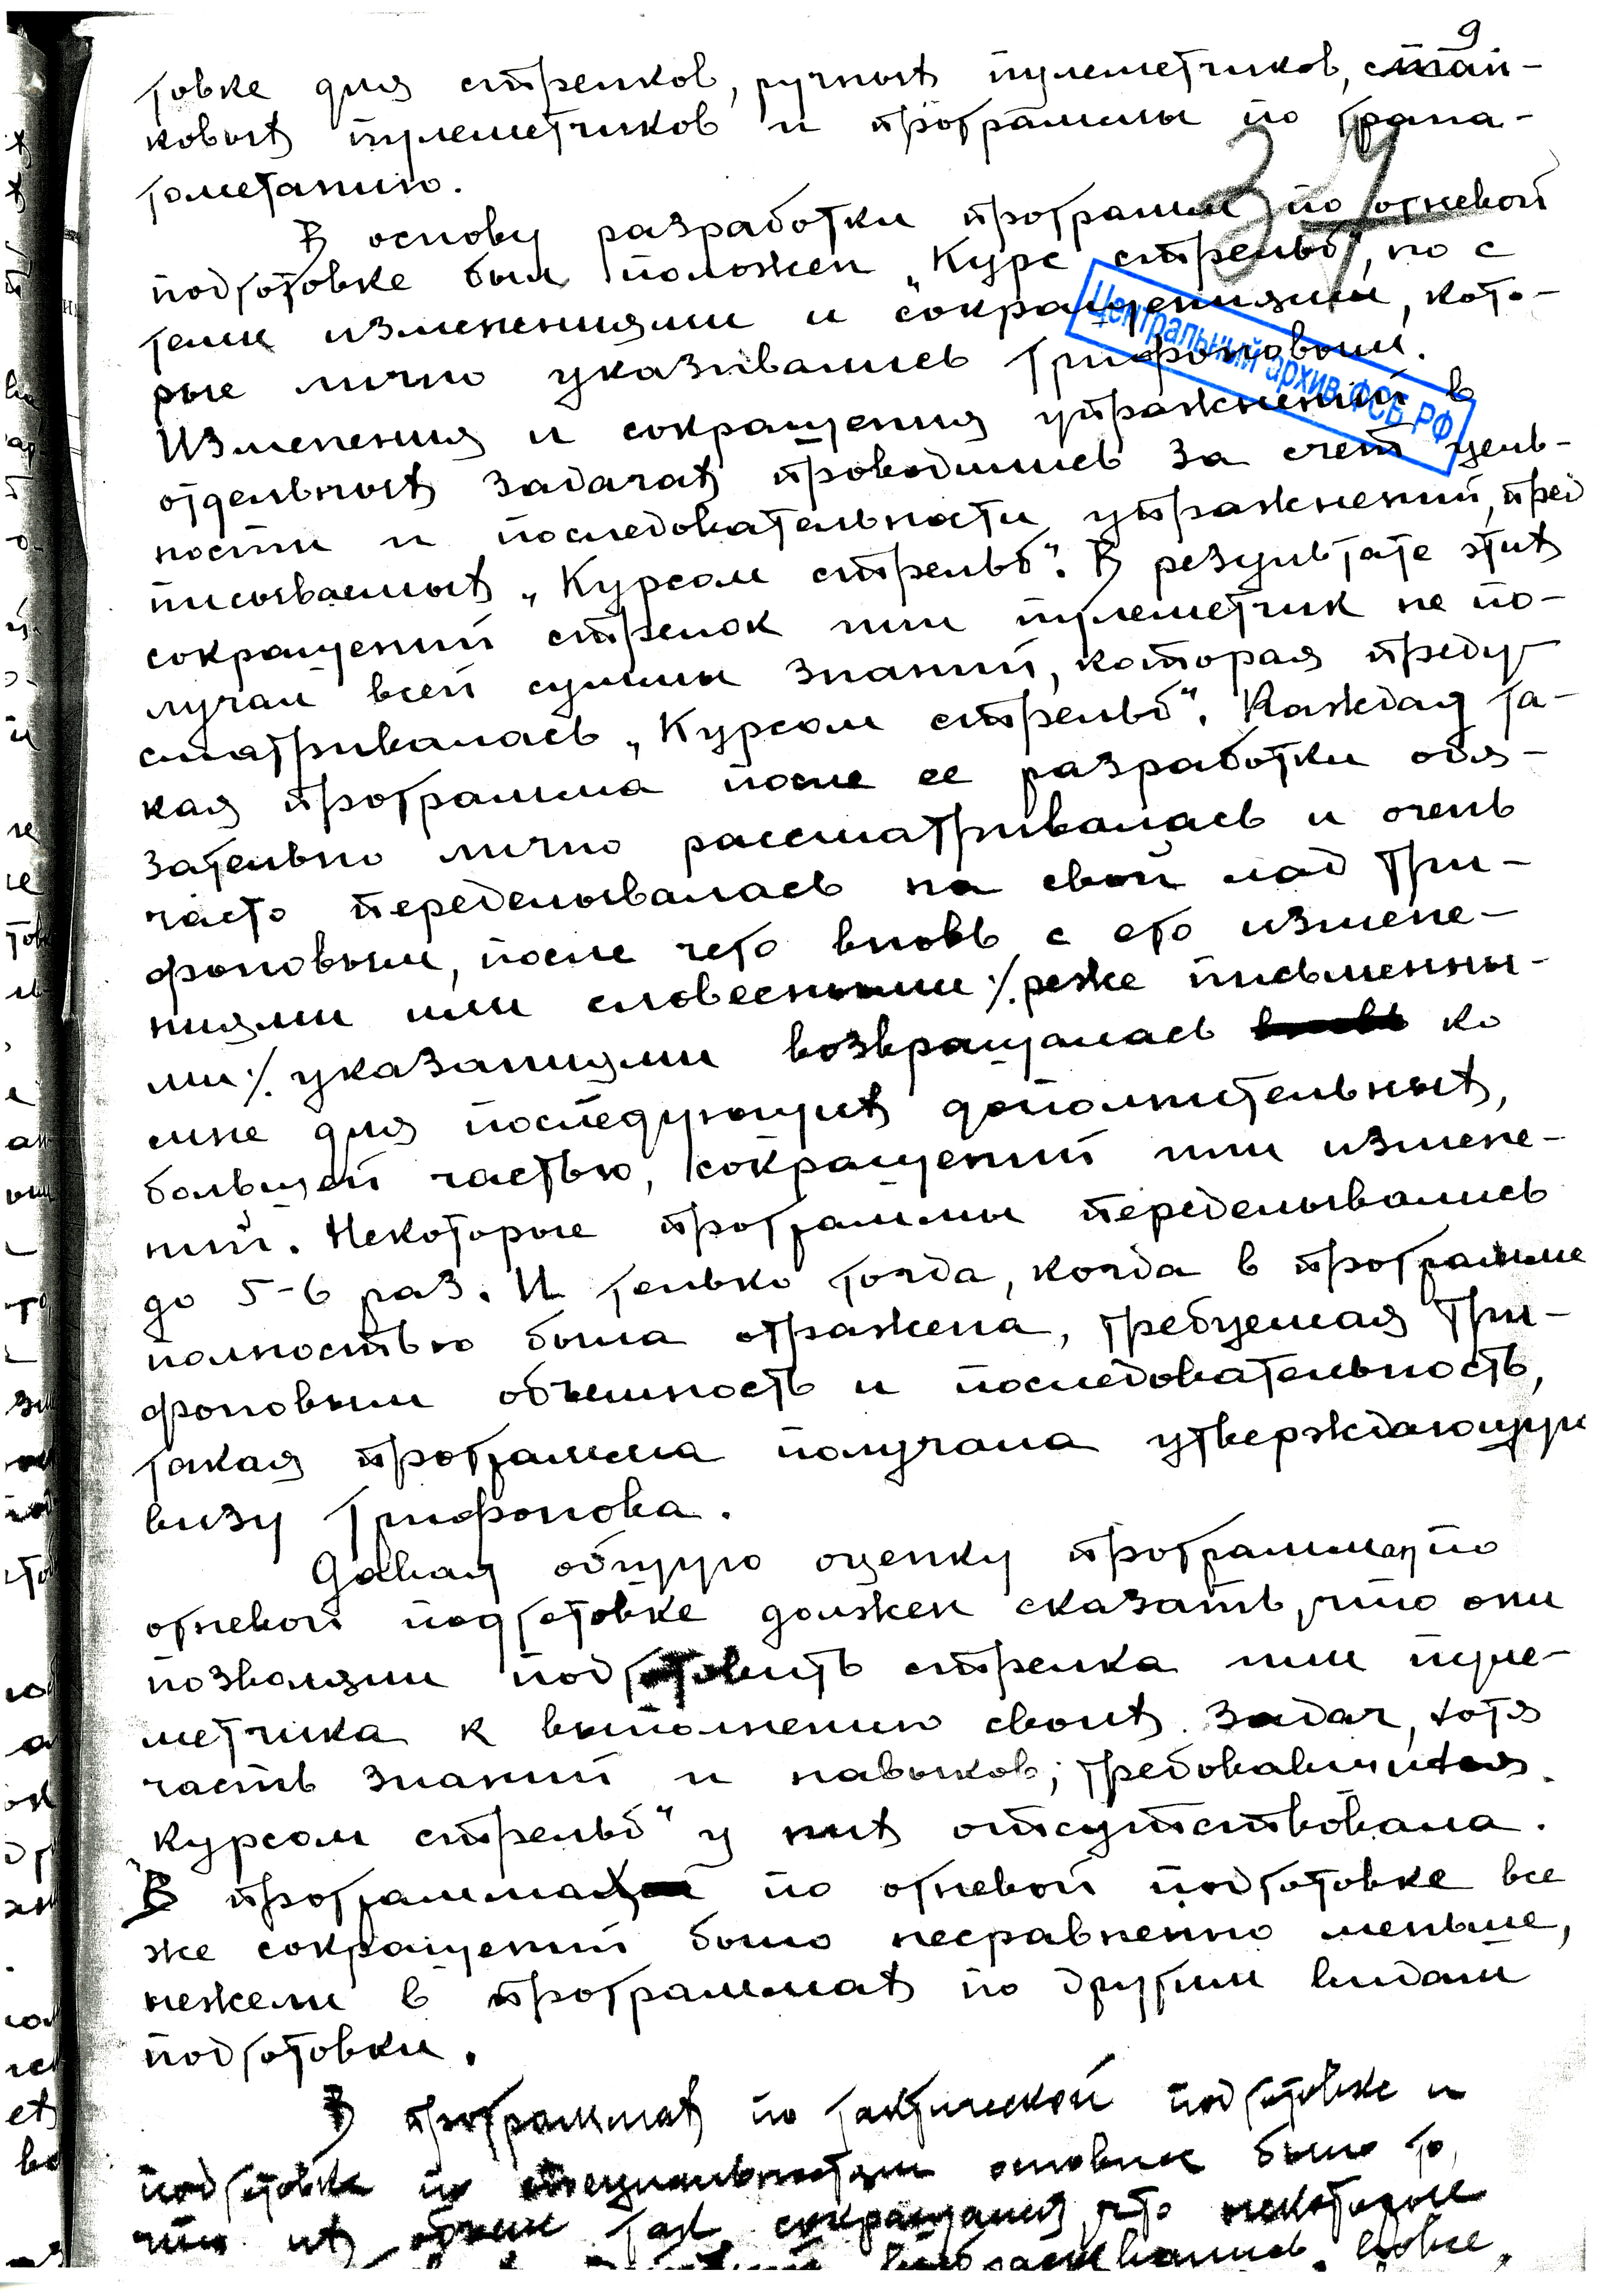 9
товке для стрелков, ручных пулеметчиков, стан-
ковых пулеметчиков и программы по грана-
тометанию.
34
В основу разработки программ по огневой
подготовке был положен „Курс стрельб", но с
теми изменениями и сокращениями, кото-
рые лично указывались Трифоновым.
Центральный архив ФСБ РФ
Изменения и сокращения упражнений в
отдельных задачах проводились за счет цель-
ности и последовательности упражнений, пред
писываемых „Курсом стрельб". В результате этих
сокращений стрелок или пулеметчик не по-
лучал всей суммы знаний, которая преду-
сматривалась „Курсом стрельб". Каждая та-
кая программа после ее разработки обя-
зательно лично рассматривалась и очень
часто переделывалась на свой лад Три-
фоновым, после чего вновь с его измене-
ниями или словесными /. реже письменны-
ми ./ указаниями возвращалась ко
мне для последующих дополнительных,
большей частью, сокращений или измене-
ний. Некоторые программы переделывались
до 5-6 раз. И только тогда, когда в программе
полностью была отражена, требуемая Три-
фоновым объемность и последовательность,
такая программа получала утверждающую
визу Трифонова.
Давая общую оценку программам по
огневой подготовке должен сказать, что они
позволяли подготовить стрелка или пуле-
метчика к выполнению своих задач, хотя
часть знаний и навыков, требовавшихся
„Курсом стрельб" у них отсутствовала.
В программах по огневой подготовке все
же сокращений было несравненно меньше,
нежели в программах по другим видам
подготовки.
В программах по тактической подготовке и
подготовке по специальностям основное было то,
что их объем так сокращался, что некоторые
выбрасывались вовсе,